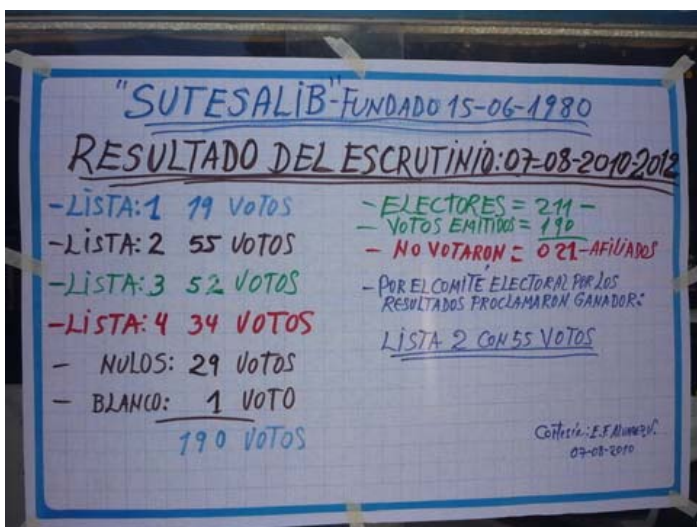 "SUTESALIB"-FUNDADO 15-06-1980
RESULTADO DEL ESCRUTINIO: 07-08-2010-2012
-LISTA: 1 19 VOTOS
-LISTA: 2 55 VOTOS
-LISTA: 3 52 VOTOS
-LISTA: 4 34 VOTOS
- NULOS: 29 VOTOS
- BLANCO: 1 VOTO
190 VOTOS
- ELECTORES = 211 -
- VOTOS EMITIDOS = 190
- NO VOTARON = 021-AFILIADOS
- POR EL COMITÉ ELECTORAL POR LOS
RESULTADOS PROCLAMARON GANADOR:
LISTA 2 CON 55 VOTOS
Cortesía: E.F.
07-08-2010